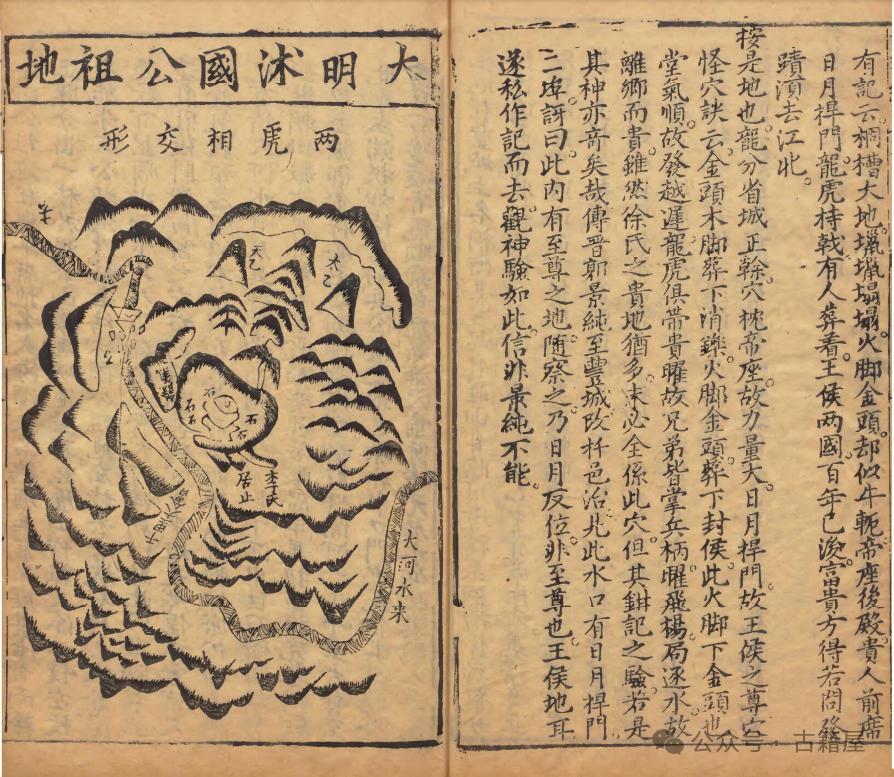 有記云桐槽大地塌塌火脚金頭却似牛軛帝座後殿貴人前席
日月桿門龍虎持戟有人葬着王侯兩國百年已後富貴方得若問發
蹟濆去江北。
按是地也龍分省城正幹穴枕帝座故力量大日月桿門故王侯之尊
怪穴訣云金頭木脚葬下消鑠火脚金頭葬下封侯此火脚下金頭也
堂氣順故發越遲龍虎俱帶貴曜故兄弟皆掌兵柄曜飛揚局逐水故
離鄉而貴雖然徐氏之貴地猶多未必全係此穴但其鉗記之驗若是
其神亦奇矣哉傳晋郭景純至豐城改杵邑治見此水口有日月桿門
二埠訝曰此内有至尊之地隨察之乃日月反位非至尊也王侯地耳
遂私作記而去觀神驗如此信非景純不能。
大明沭國公祖地
兩虎相交形
太乙
天乙
石
石
石
石
居止
大河水来
公众号 · 古籍屋